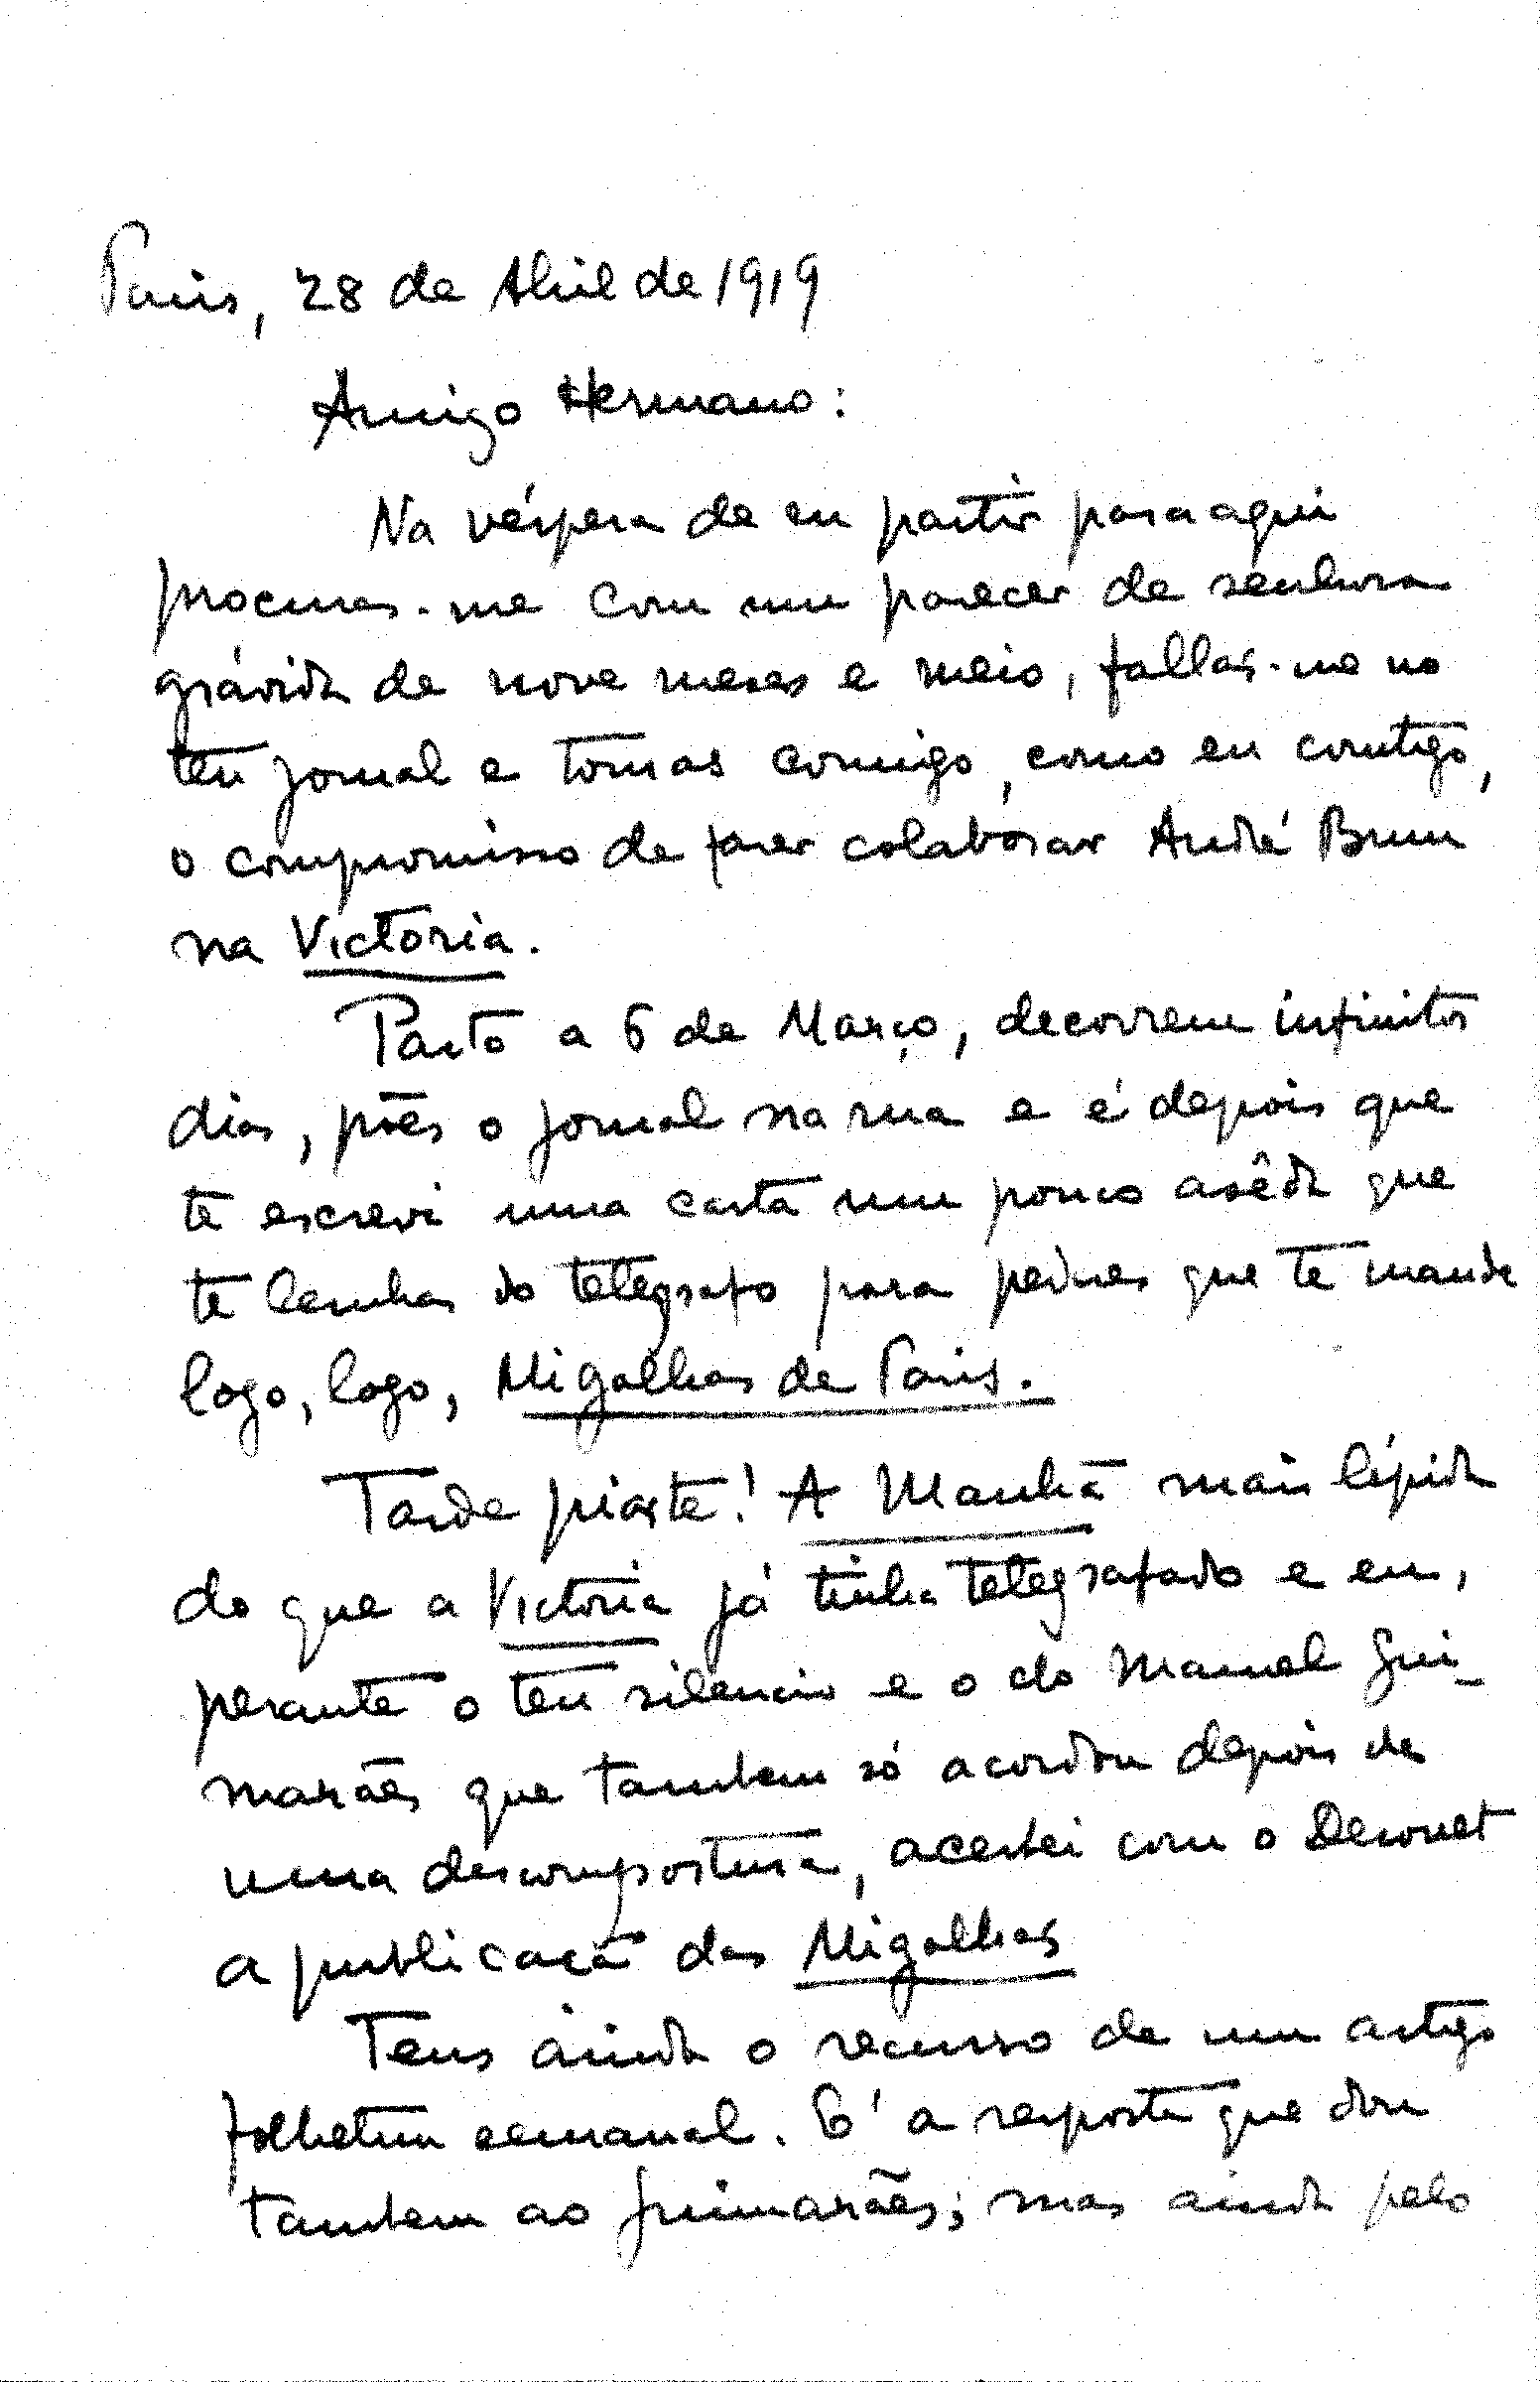 Paris, 28 de Abril de 1919
Amigo Hermano:
Na véspera de eu partir para aqui
procuras-me com um parecer de senhora
grávida de nove meses e meio, fallas-me no
teu jornal e tomas comigo, como eu contigo,
o compromisso de fazer colaborar André Brun
na Victoria.
Parto a 6 de Março, decorrem infinitos
dias, pões o jornal na rua e é depois que
te escrevi uma carta um pouco asêda que
te lembras do telegrafo para pedires que te mande
logo, logo, Migalhas de Paris.
Tarde piaste! A Manhã mais lépida
do que a Victoria já tinha telegrafado e eu,
perante o teu silencio e o do Manuel Gui-
marães que tambem só acordou depois de
uma descompostura, acertei com o
a publicação das Migalhas
Tens ainda o recurso de um artigo
folhetim semanal. É a resposta que dou
tambem ao Guimarães; mas ainda pelo